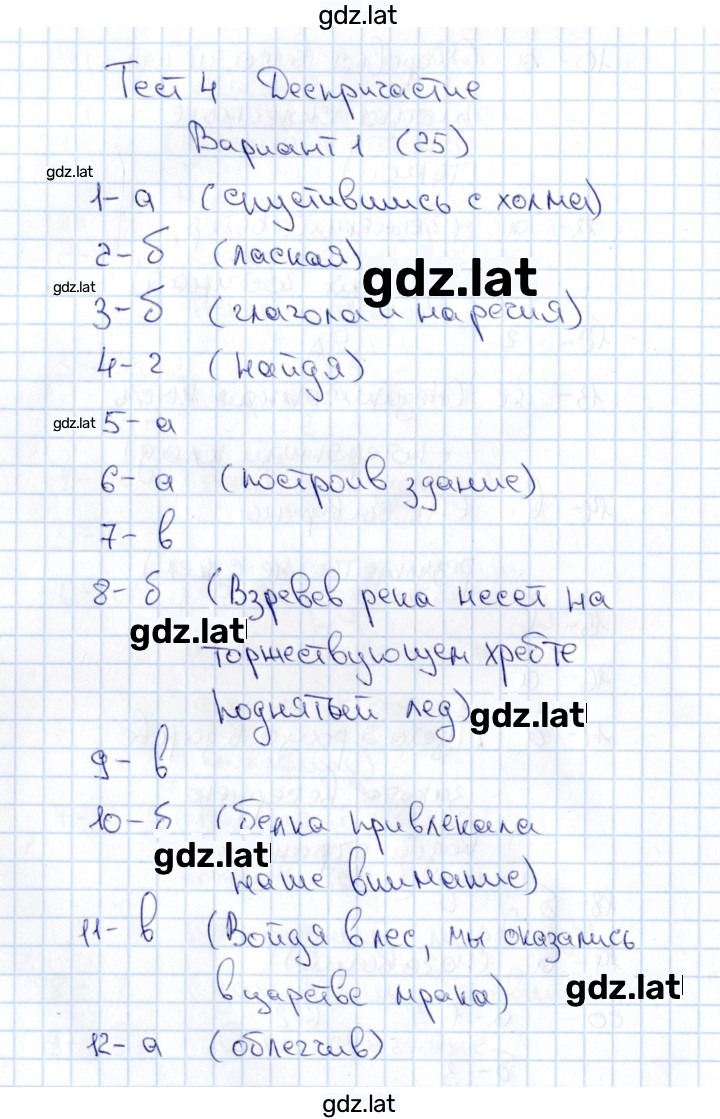 gdz.lat
Тест 4 Деепричастие
Вариант 1 (25)
gdz.lat
1- а (спустившись с холма)
2- б (лаская)
gdz.lat
gdz.lat
3- б (глагола и наречия)
4- г (найдя)
gdz.lat
5- а
6- а (построив здание)
7- в
8- б (Взревев река несет на
gdz.lat
торжествующем хребте
поднятый лед)
gdz.lat
9- в
10- б (белка привлекала
gdz.lat
наше внимание)
11- в (Войдя в лес, мы оказались
в царстве мрака)
gdz.lat
12- а (облегчив)
gdz.lat